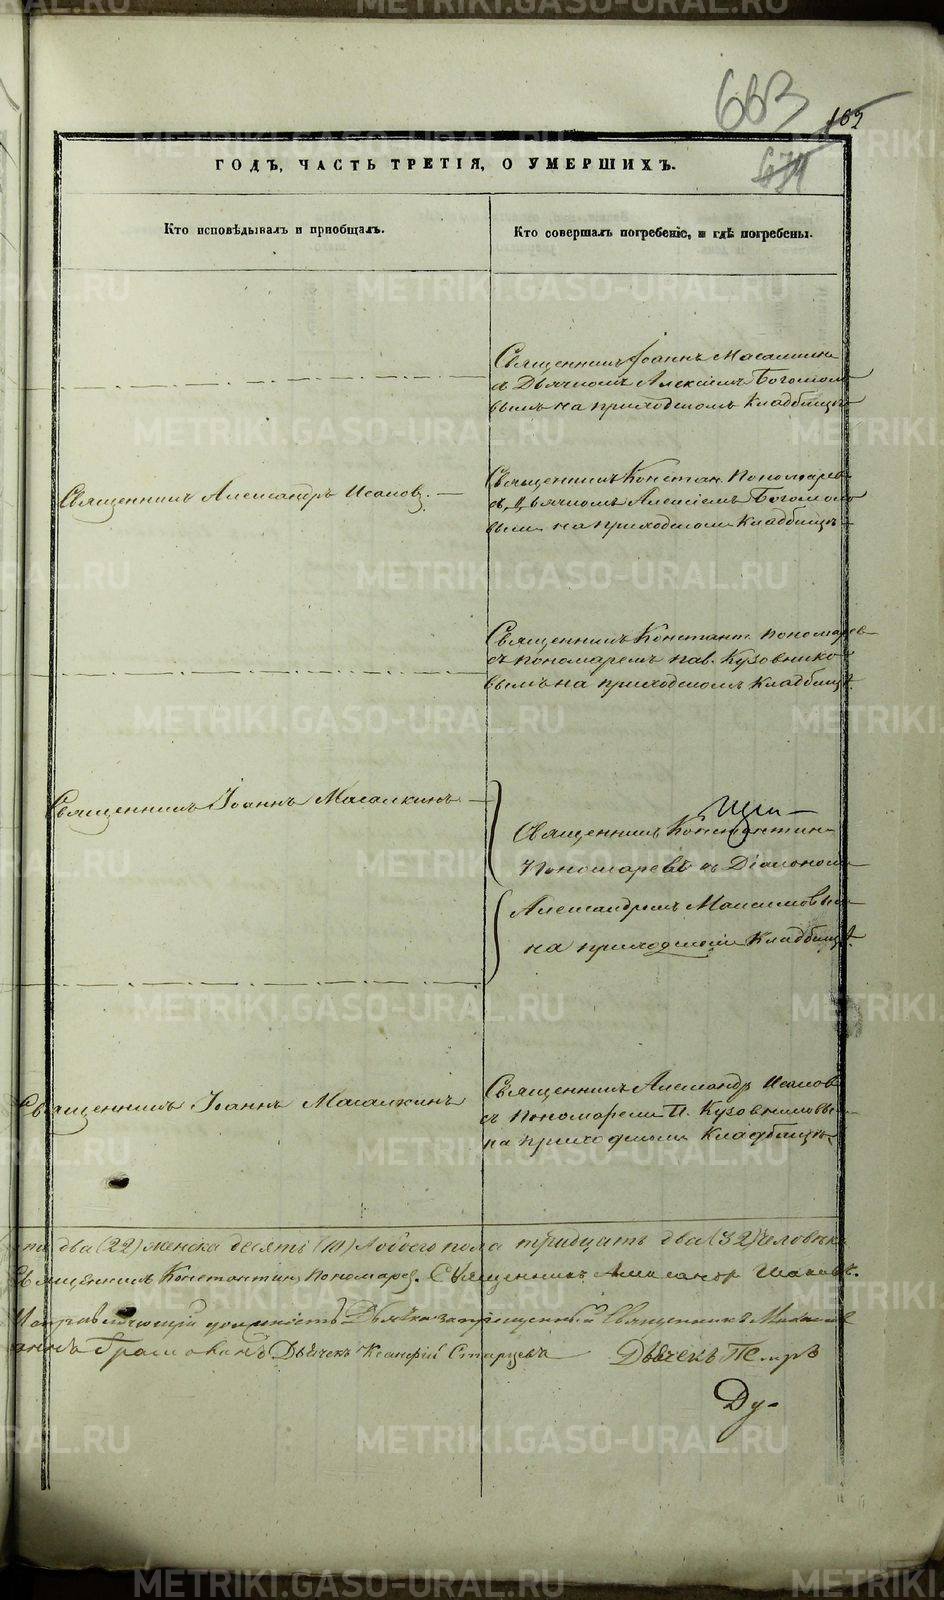 663
169
674
ГОДЪ, ЧАСТЬ ТРЕТІЯ, О УМЕРШИХЪ.
Кто исповѣдывалъ и пріобщалъ.
Кто совершалъ погребеніе, и гдѣ погребены.
Священникъ Іоаннъ Масалкинъ
съ Дьячкомъ Алексіемъ Богомоло
вымъ на приходскомъ кладбищѣ
Священникъ Александръ Исаковъ.
Священникъ Констан. Пономарев
съ Дьячкомъ Алексіемъ Богомоло
вымъ на приходскомъ кладбищѣ
Священникъ Констант. Пономарев
съ пономаремъ Пав. Кузовнико
вымъ на приходскомъ кладбищѣ.
Священникъ Іоаннъ Масалкинъ
Священникъ Константинъ
Пономаревъ съ Діакономъ
Александромъ Максимовымъ
на приходскомъ кладбищѣ.
Священникъ Іоаннъ Масалкинъ
Священникъ Александръ Исаков
съ Пономаремъ П. Кузовниковым
на приходскомъ кладбищѣ
два (22) женска десять (10) А обоего пола тридцать два (32) человѣка
Священникъ Константинъ Пономарев. Священникъ Александр Исаковъ.
Исправляющій должность Дьячка запрещенный Священникъ
Дьячекъ Ксанфій Старцевъ Дьячекъ Петръ
Ду-
METRIKI.GASO-URAL.RU